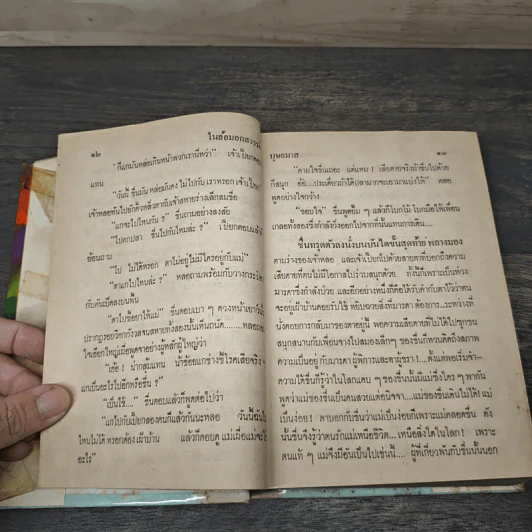 ๑๒
ในอ้อมอกสารว
"ก็แกมันหล่อเกินหน้าพวกเรานี่หว่า" เจ้าเปี๊ยกตอบ
แทน
"วันนี้ ชื่นมันหล่อมันคงไม่ไปกับเราหรอก เจ้าเปี๊ยก"
"แกจะไปไหนกัน ?" ชื่นถามอย่างสงสัย
"ไปตกปลา ชื่นไปกันไหมล่ะ ?" เปี๊ยกตอบแล้ว
ย้อนถาม
"ไป ไม่ได้หรอก ตาไม่อยู่ไม่มีใครอยู่กับแม่"
"ตาแกไปไหนล่ะ ?" หล่อถามพร้อมกับวางกระ
กับคันเบ็ดลงบนพื้น
"ตาไปซื้อยาให้แม่" ชื่นตอบเบา ๆ ดวงหน้าเขา
ปรากฏรอยวิตกกังวลจนสหายทั้งสองนั้นเห็นถนัด........หล่อ
ใจเฮือกใหญ่เมื่อพูดจาอย่างผู้หลักผู้ใหญ่ว่า
"เฮ้อ ! น่ากลุ้มแทน น้าช้อยแกช่างขี้โรคเสียจริง
แกเป็นอะไรไปอีกหรือชื่น ?"
"เป็นไข้..." ชื่นตอบแล้วก็พูดต่อไปว่า
"แกไปกับเปี๊ยกสองคนก็แล้วกันนะหล่อ วันนี้
ไหนไม่ได้ หรอกต้อง เฝ้าบ้าน แล้วก็คอยดู แม่ เผื่อแม่จะ
อะไร"
บุษยมาส
๑๓
"ตามใจชื่นเถอะ แต่แหม ! เสียดายจริงถ้าชื่นไปด้วย
ก็สนุก อ้อ...ประเดี๋ยวถ้าได้ปลามากจะเอามาแบ่งให้" หล่อ
พูดอย่างใจกว้าง
"ขอบใจ" ชื่นพูดยิ้ม ๆ แล้วก็โบกไม้ โบกมือให้เพื่อน
เกลอทั้งสองซึ่งกำลังวิ่งออกไปจากที่นั้นแทนการเดิน....
ชื่นทรุดตัวลงนั่งบนบันไดขั้นสุดท้าย พลางมอง
ตามร่างของเจ้าหล่อ และเจ้าเปี๊ยกไปด้วยสายตาที่บอกถึงความ
เสียดายที่ตนไม่มีโอกาสไปร่วมสนุกด้วย ทั้งนี้ก็เพราะเป็นห่วง
มารดาซึ่งกำลังป่วย และอีกอย่างหนึ่งก็คือได้รับคำกับตาไว้ว่าตน
จะอยู่เฝ้าบ้านคอยรับใช้ หยิบฉวยสิ่งที่มารดา ต้องการ..ระหว่างที่
นั่งคอยการกลับมาของตาอยู่นี้ พอความเสียดายที่ไม่ได้ไปซุกซน
สนุกสนานกับเพื่อนจางไปสมองเล็กๆ ของชื่นก็หวนคิดถึงสภาพ
ความเป็นอยู่ กับมารดา ผู้พิการและตาผู้ชรา !....ตั้งแต่พอเริ่มจำ—
ความได้ชื่นก็รู้ว่าในโลกแคบ ๆ ของชื่นนั้นมีแม่ซึ่งใคร ๆ พากัน
พูดว่าแม่ของชื่นเป็นคนสวยแต่อนิจจา....แม่ของชื่นเดินไม่ได้! แม่
เป็นง่อย ! ตาบอกกับชื่นว่าแม่เป็นง่อยก็เพราะแม่คลอดชื่น ดัง
นั้นชื่นจึงรู้ว่าตนรักแม่เหนือชีวิต....เหนือสิ่งใดในโลก ! เพราะ
ตนแท้ ๆ แม่จึงมีอันเป็นไปเช่นนี้.... ผู้ที่เกี่ยวพันกับชื่นนั้นนอก